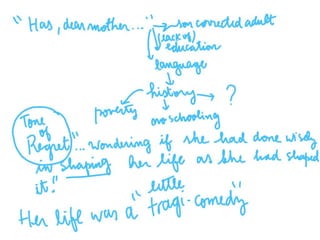 "Has, dear mother..." → son corrected adult
(lack of)
education
language
history → ?
poverty
no schooling
Tone
of
Regret
"... wondering if she had done wisely
in shaping her life as she had shaped
it."
little
Her life was a "tragi-comedy"